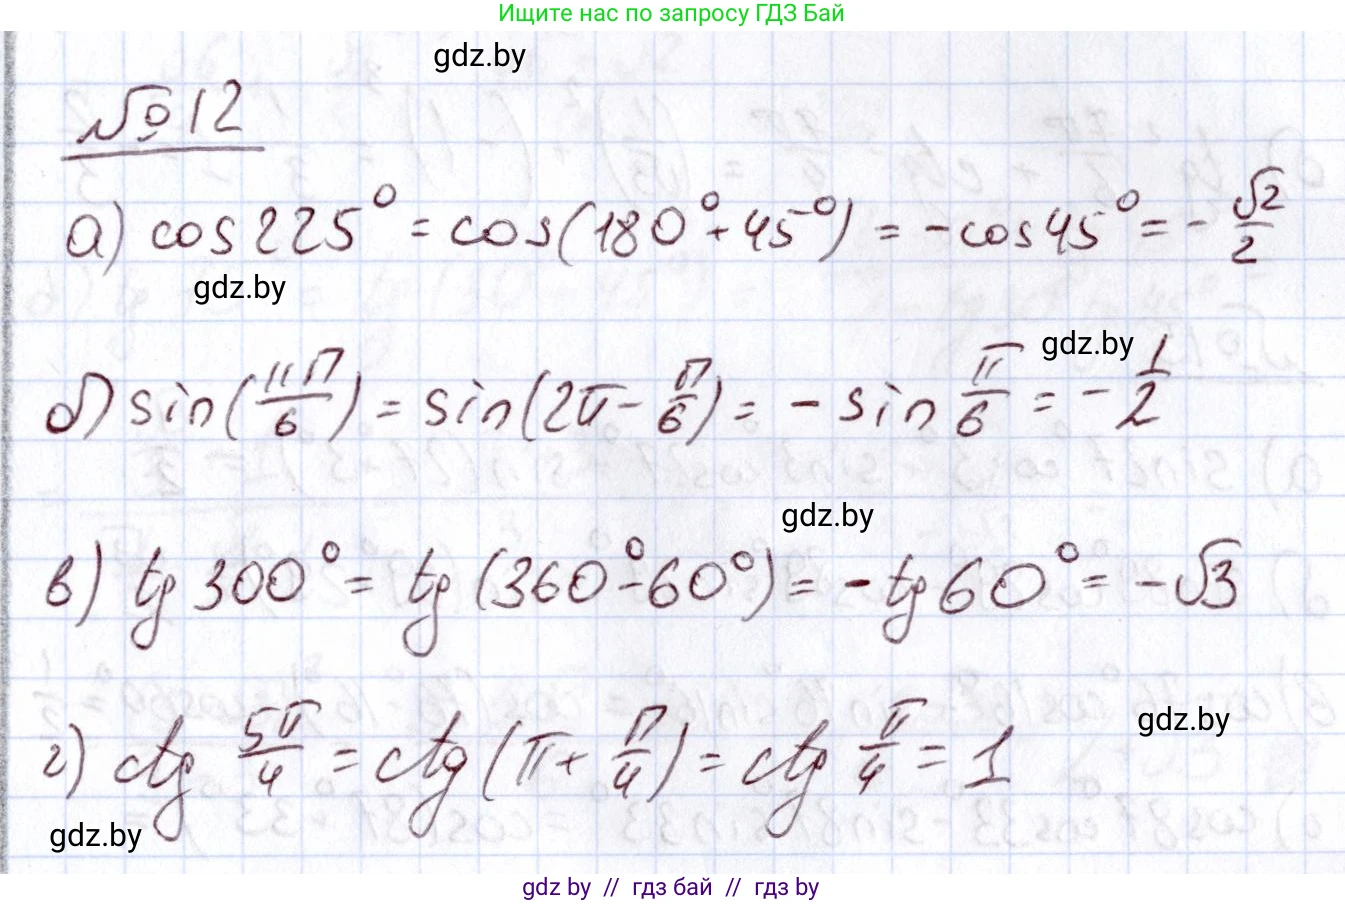 Ищите нас по запросу ГДЗ Бай
gdz.by
№ 12
а) cos 225° = cos(180° + 45°) = - cos 45° = - √2/2
gdz.by
gdz.by
б) sin(11π/6) = sin(2π - π/6) = - sin π/6 = - 1/2
gdz.by
в) tg 300° = tg (360° - 60°) = - tg 60° = - √3
gdz.by
г) ctg 5π/4 = ctg (π + π/4) = ctg π/4 = 1
gdz.by
gdz by // гдз бай // гдз by